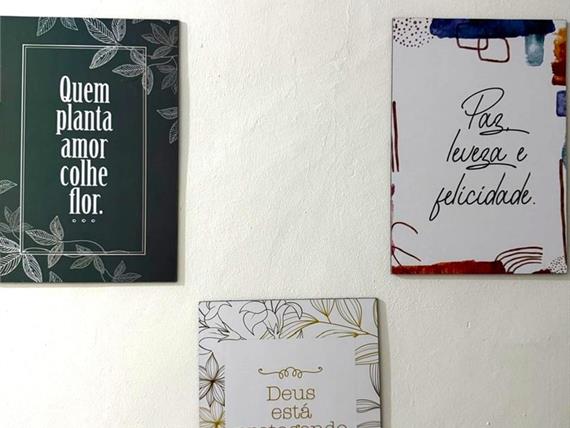 Quem
planta
amor
colhe
flor.
Paz,
leveza e
felicidade.
Deus
está